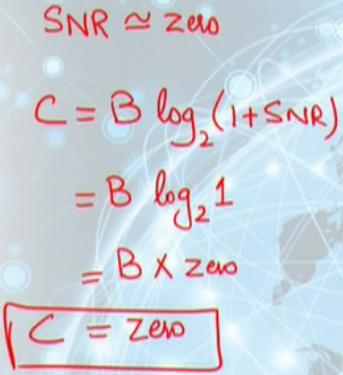 SNR ≃ zero
C = B log₂(1+SNR)
= B log₂1
= B x zero
C = zero